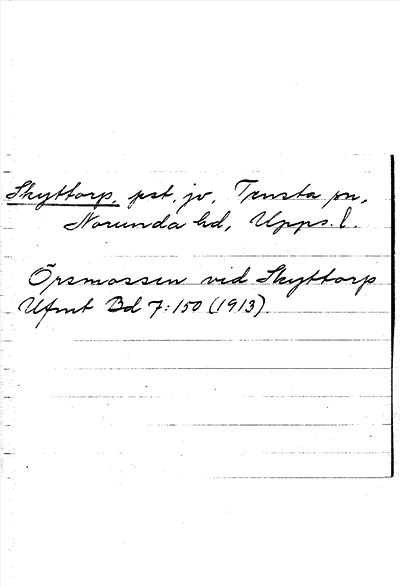 Skyttorp, pst, jv, Tensta sn,
Norunda hd, Upps. l.
Örsmossen vid Skyttorp
Ufmt Bd 7:150 (1913).